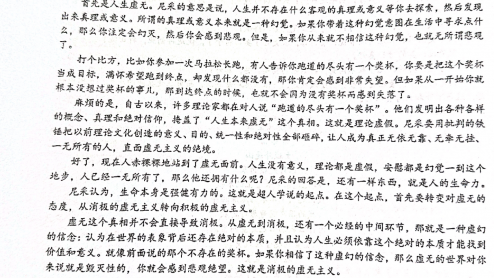 首先是人生虚无。尼采的意思是说，人生并不存在什么客观的真理或意义等你去探索，然后发现
出来真理或意义。所谓的真理或意义本来就是一种幻觉。如果你带着这种幻觉意图在生活中寻求点什
么，那么你注定会幻灭，然后你会感到悲观。但是，如果你从来就不相信这种幻觉，也就无所谓悲观
了。
打个比方，比如你参加一次马拉松长跑，有人告诉你跑道的尽头有一个奖杯，你要是把这个奖杯
当成目标，满怀希望跑到终点，却发现什么都没有，那你肯定会感到非常失望。但如果从一开始你就
根本没想过奖杯的事儿，那到达终点的时候，也就不会因为没有奖杯而感到失落了。
麻烦的是，自古以来，许多理论家都在对人说“跑道的尽头有一个奖杯”。他们发明出各种各样
的概念、真理和绝对信仰，掩盖了“人生本来虚无”这个真相。这就是理论虚假。尼采要用批判的铁
锤把以前理论文化创造的意义、目的、统一性和绝对性全部砸碎，让人成为真正无依无靠、无牵无挂、
一无所有的人，直面虚无主义的绝境。
好了，现在人赤裸裸地站到了虚无面前。人生没有意义，理论都是虚假，安慰都是幻觉一到这个
地步，人已经一无所有了，那么他还拥有什么呢？尼采的回答是，还有一样东西，就是人的生命力。
尼采认为，生命本身是强健有力的。这就是超人学说的起点。在这个起点，首先要转变对虚无的
态度，从消极的虚无主义转向积极的虚无主义。
虚无这个真相并不会直接导致消极。从虚无到消极，还有一个必经的中间环节，那就是一种虚幻
的信念：认为在世界的表象背后还存在绝对的本质，并且认为人生必须依靠这个绝对的本质才能找到
价值和意义。就像前面说的那个不存在的奖杯。如果你相信了这种虚幻的信念，那么虚无的世界对你
来说就是毁灭性的，你就会感到悲观绝望。这就是消极的虚无主义。